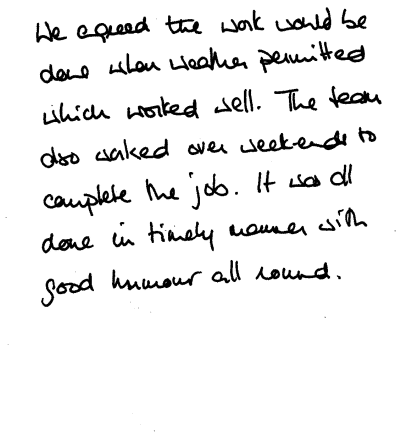 We agreed the work would be
done when weather permitted
which worked well. The team
also worked over weekends to
complete the job. It was all
done in timely manner with
good humour all round.